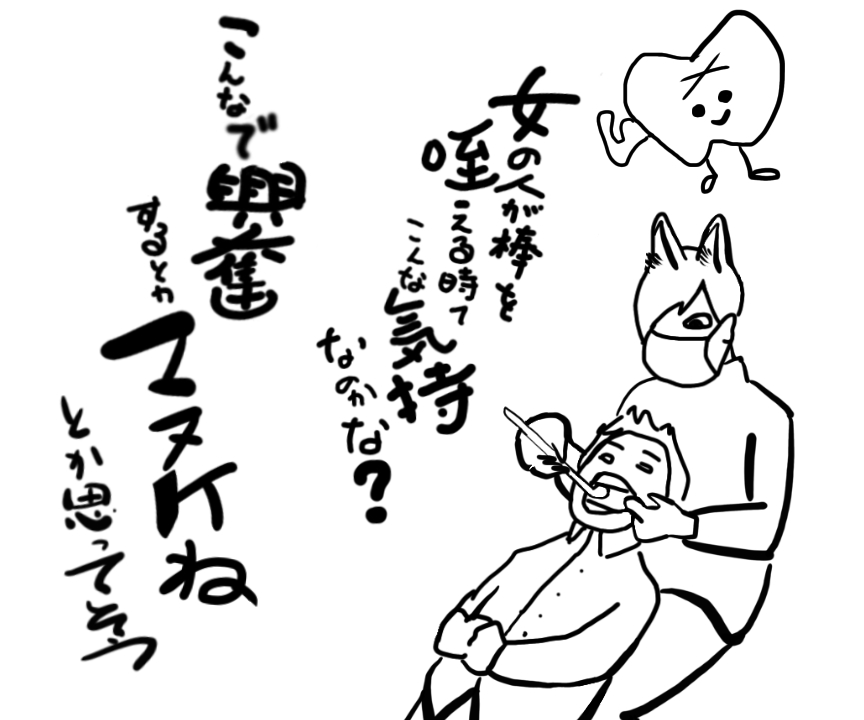 女の人が棒を
咥える時って
こんな気持
なのかな?
こんなで興奮
するとか
マヌケね
とか思ってそう